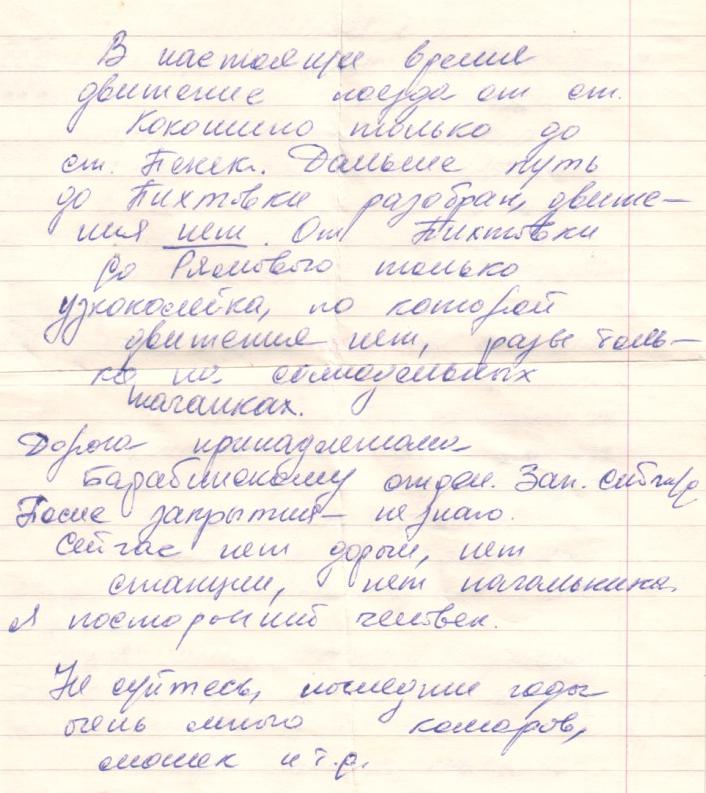 В настоящее время
движение поезда от ст.
Кокошино только до
ст. Пенек. Дальше путь
до Пихтовки разобран, движе-
ния нет. От Пихтовки
до Рямового только
узкоколейка, по которой
движения нет, разве толь-
ко на самодельных
таганках.
Дорога принадлежала
Барабинскому отдел. Зап. сиб ж/д
После закрытия – не знаю.
Сейчас нет дороги, нет
станции, нет начальника
Я посторонний человек.
Не суйтесь, последние годы
очень много комаров,
мошек и т.д.